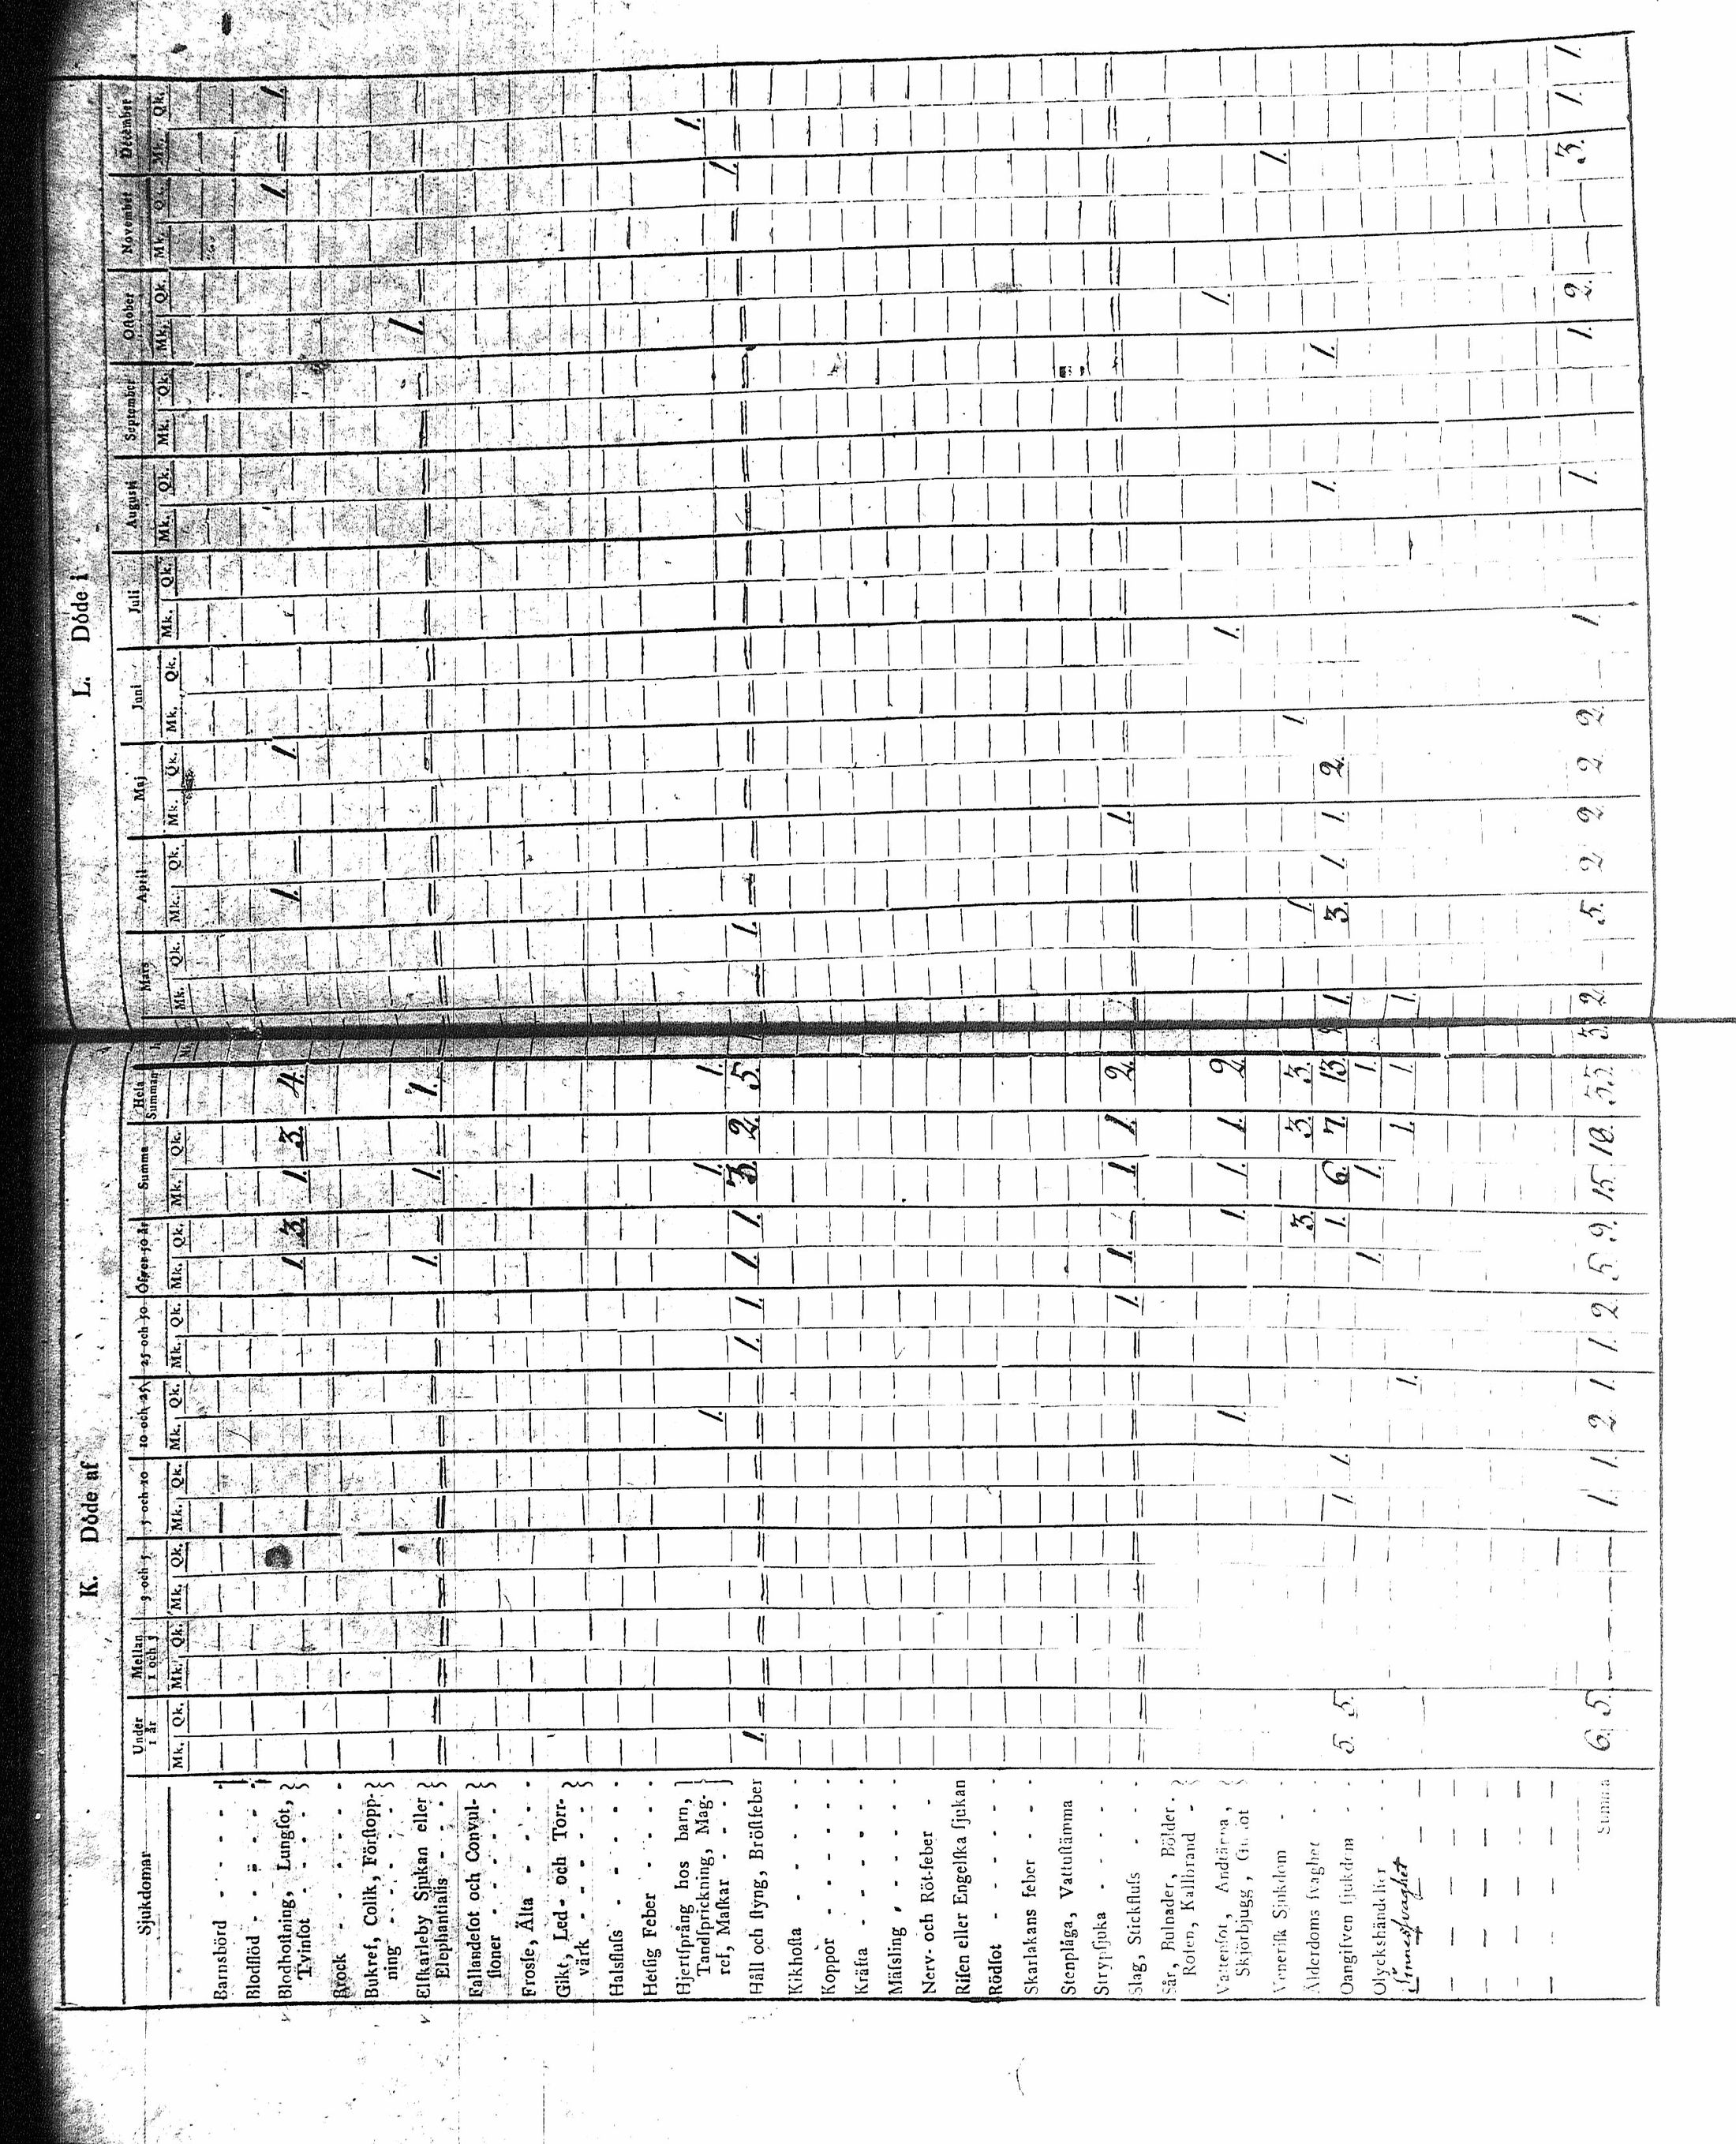 K. Döde af
L. Döde i
Sjukdomar
Under 1 år
Mellan 1 och 3
3 och 5
5 och 10
10 och 25
25 och 50
Öfver 50 år
Summa
Hela Summan
Mars
April
Maj
Juni
Juli
Augusti
September
Oktober
November
December
Mk. Qk. Mk. Qk. Mk. Qk. Mk. Qk. Mk. Qk. Mk. Qk. Mk. Qk. Mk. Qk. Mk. Qk. Mk. Qk. Mk. Qk. Mk. Qk. Mk. Qk. Mk. Qk. Mk. Qk. Mk. Qk. Mk. Qk. Mk. Qk.
Barnsbörd
Blodflöd
Blodhoſtning, Lungſot, Tvinſot 1. 3. 1. 3. 4. 1. 1. 1. 1.
Brock
Bukref, Collik, Förſtoppning
Elfkarleby Sjukan eller Elephantiaſis 1. 1. 1. 1.
Fallandeſot och Convulſioner
Froſſe, Älta
Gikt, Led- och Torrvärk
Halsfluſs
Hetſig Feber
Hjertſprång hos barn, Tandſprickning, Magref, Maſkar 1. 1. 1. 1. 1.
Håll och ſtyng, Bröſtfeber 1. 1. 1. 1. 1. 3. 2. 5. 1.
Kikhoſta
Koppor
Kräfta
Mäſsling
Nerv- och Röt-feber
Riſen eller Engelſka ſjukan
Rödſot
Skarlakans feber
Stenplåga, Vattuſtämma
Strypſjuka
Slag, Stickfluſs 1. 1. 1. 1. 2. 1.
Sår, Bulnader, Bölder, Roten, Kallbrand
Vattenſot, Andtäppa, Skjörbjugg, 1. 1. 1. 1. 2. 1. 1.
Veneriſk Sjukdom
Ålderdoms ſvaghet 3. 3. 3. 1. 1. 1.
Oangifven ſjukdom 5. 5. 1. 1. 1. 6. 7. 13. 1. 3. 1. 1. 2. 1. 1.
Olyckshändelſer 1. 1. 1.
Sinnesſvaghet 1. 1. 1. 1.
Summa 6. 5. 1. 1. 2. 1. 1. 2. 5. 9. 15. 18. 33. 3. 2. 5. 2. 2. 2. 2. 1. 1. 1. 2. 3. 1. 1.